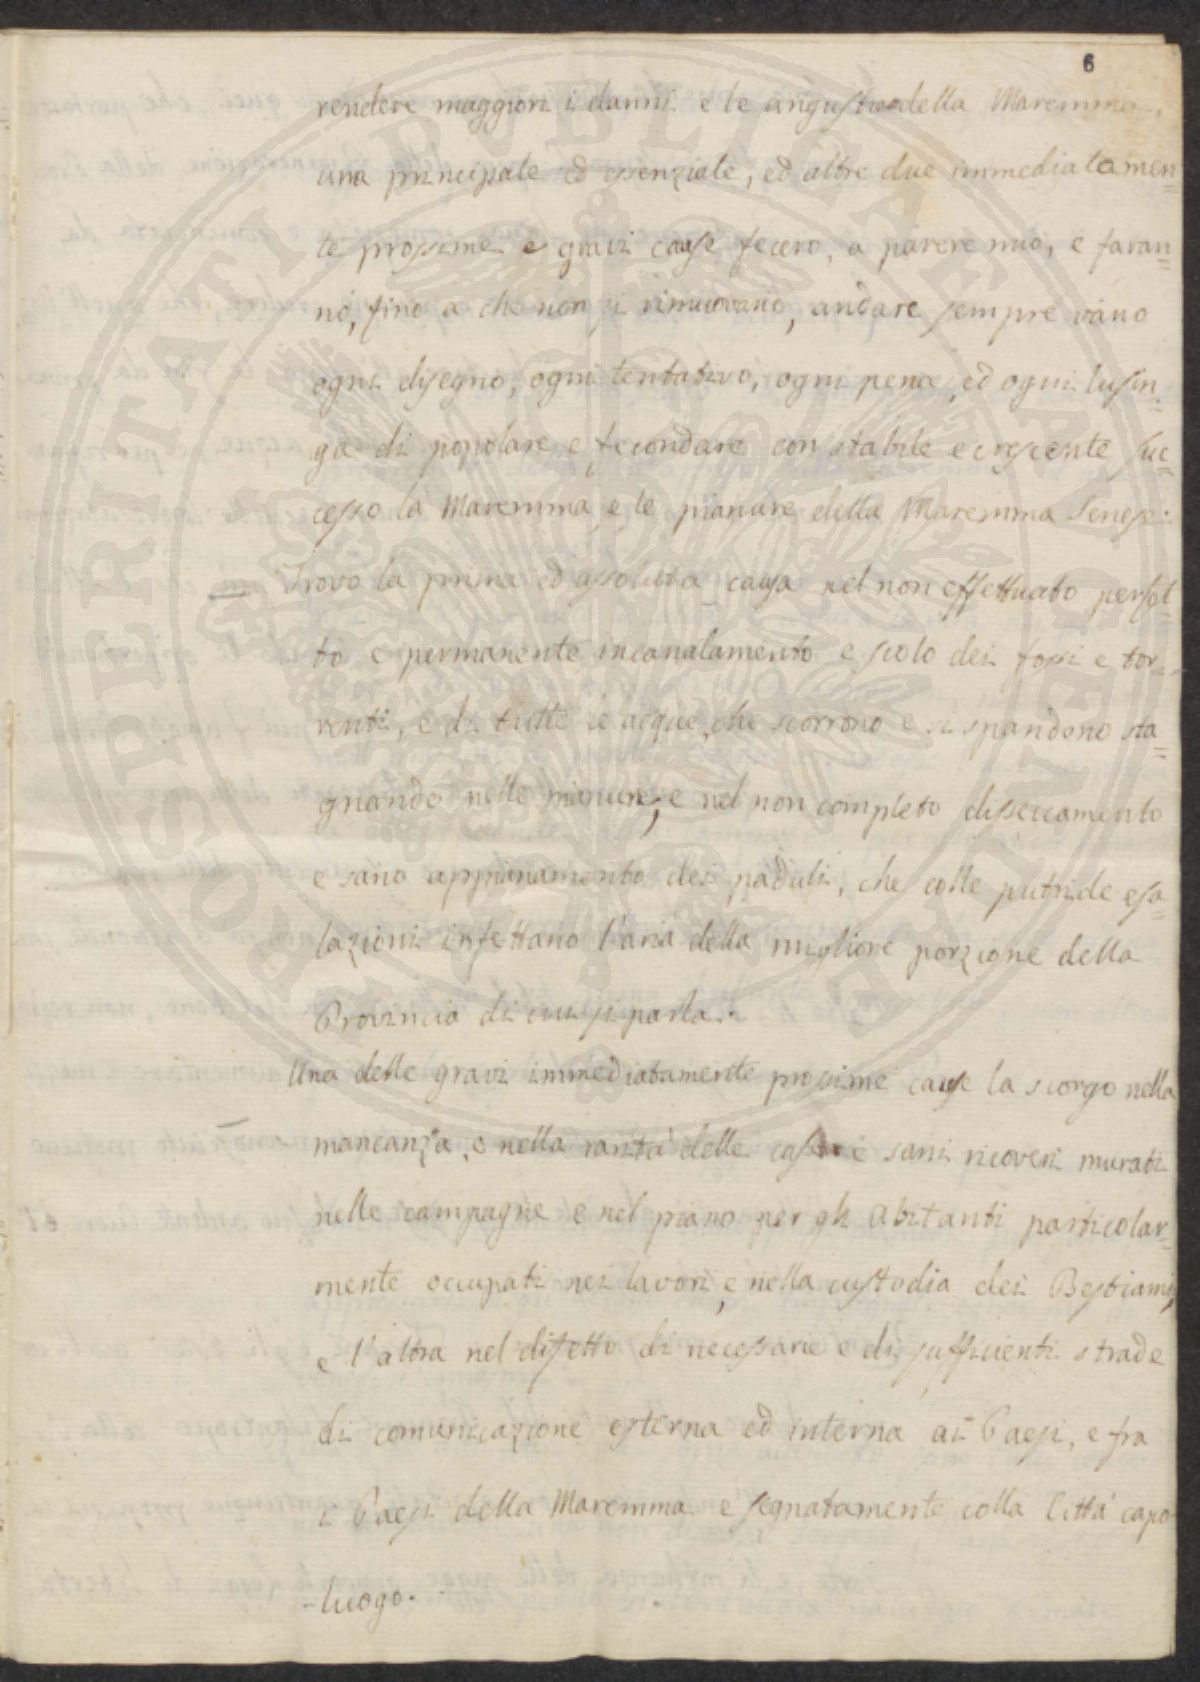 6
rendere maggiori i danni e le angustie della Maremma,
una principale ed essenziale, ed altre due immediatamen=
te prossime e gravi cause fecero, a parere mio, e faran=
nò, fino a che non si rimuovano, andare sempre vano
ogni disegno, ogni tentativo, ogni pena, ed ogni lusin=
ga di popolare e fecondare con stabile e crescente suc=
cesso la Maremma, e le pianure della Maremma Senese.
Trovo la prima ed assoluta causa nel non effettuato perfet=
to e permanente incanalamento e scolo dei fossi e tor=
renti, e di tutte le acque, che scorrono e si spandono sta=
gnando nelle pianure; e nel non completo disseccamento
e sano appianamento dei paduli, che colle putride esa=
lazioni infettano l'aria della migliore porzione della
Provincia di cui si parla.
Una delle gravi immediatamente prossime cause la scorgo nella
mancanza, e nella rarità delle case e sani ricoveri murati
nelle campagne e nel piano per gli abitanti particolar=
mente occupati nei lavori, e nella custodia dei Bestiami,
e l'altra nel difetto di necessarie e di sufficienti strade
di comunicazione esterna ed interna ai Paesi, e fra
i Paesi della Maremma e segnatamente colla Città capo
-luogo.
PROSPERITATI PUBLICAE AUGENDAE